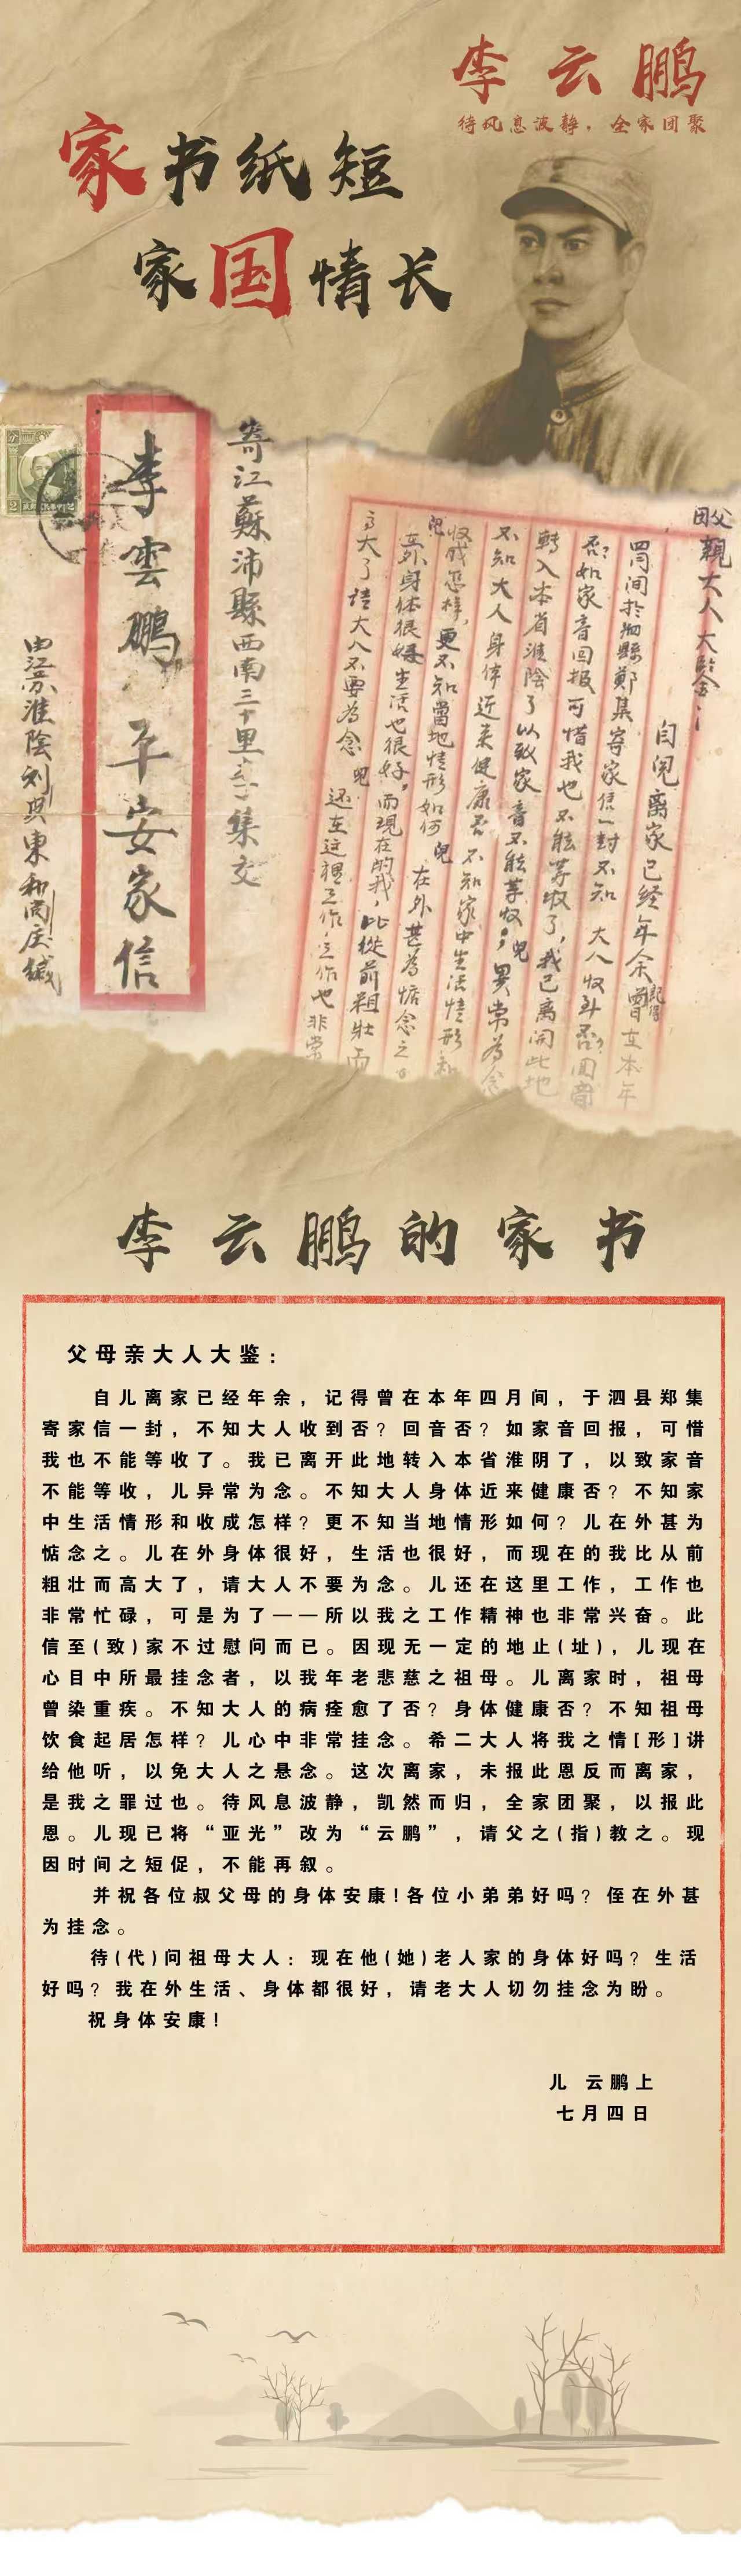 李云鹏
待风息波静，全家团聚
家书纸短
家国情长
寄江蘇沛縣西南三十里
集交
李雲鵬 平安家信
由江苏淮陰刘
東和
缄
父母
親大人大鉴：
自兒离家已经年余
曾在本年
四
月间於泗縣鄭集寄家信一封不知 大人收到否？回音
否？如家音回报可惜我也不能等收了，我已离开此地
轉入本省淮陰了以致家音不能等收，兒異常為念
不知大人身体近来健康否 不知家中生活情形和
收成怎样，更不知當地情形如何 兒在外甚為惦念之
兒在外身体很好 生活也很好，而现在的我，比從前粗壮而
高大了 请大人不要为念 兒还在这裡工作，工作也非常
李云鹏的家书
父母亲大人大鉴：
自儿离家已经年余，记得曾在本年四月间，于泗县郑集
寄家信一封，不知大人收到否？回音否？如家音回报，可惜
我也不能等收了。我已离开此地转入本省淮阴了，以致家音
不能等收，儿异常为念。不知大人身体近来健康否？不知家
中生活情形和收成怎样？更不知当地情形如何？儿在外甚为
惦念之。儿在外身体很好，生活也很好，而现在的我比从前
粗壮而高大了，请大人不要为念。儿还在这里工作，工作也
非常忙碌，可是为了——所以我之工作精神也非常兴奋。此
信至(致)家不过慰问而已。因现无一定的地止(址)，儿现在
心目中所最挂念者，以我年老悲慈之祖母。儿离家时，祖母
曾染重疾。不知大人的病痊愈了否？身体健康否？不知祖母
饮食起居怎样？儿心中非常挂念。希二大人将我之情[形]讲
给他听，以免大人之悬念。这次离家，未报此恩反而离家，
是我之罪过也。待风息波静，凯然而归，全家团聚，以报此
恩。儿现已将“亚光”改为“云鹏”，请父之(指)教之。现
因时间之短促，不能再叙。
并祝各位叔父母的身体安康！各位小弟弟好吗？侄在外甚
为挂念。
待(代)问祖母大人：现在他(她)老人家的身体好吗？生活
好吗？我在外生活、身体都很好，请老大人切勿挂念为盼。
祝身体安康！
儿 云鹏上
七月四日